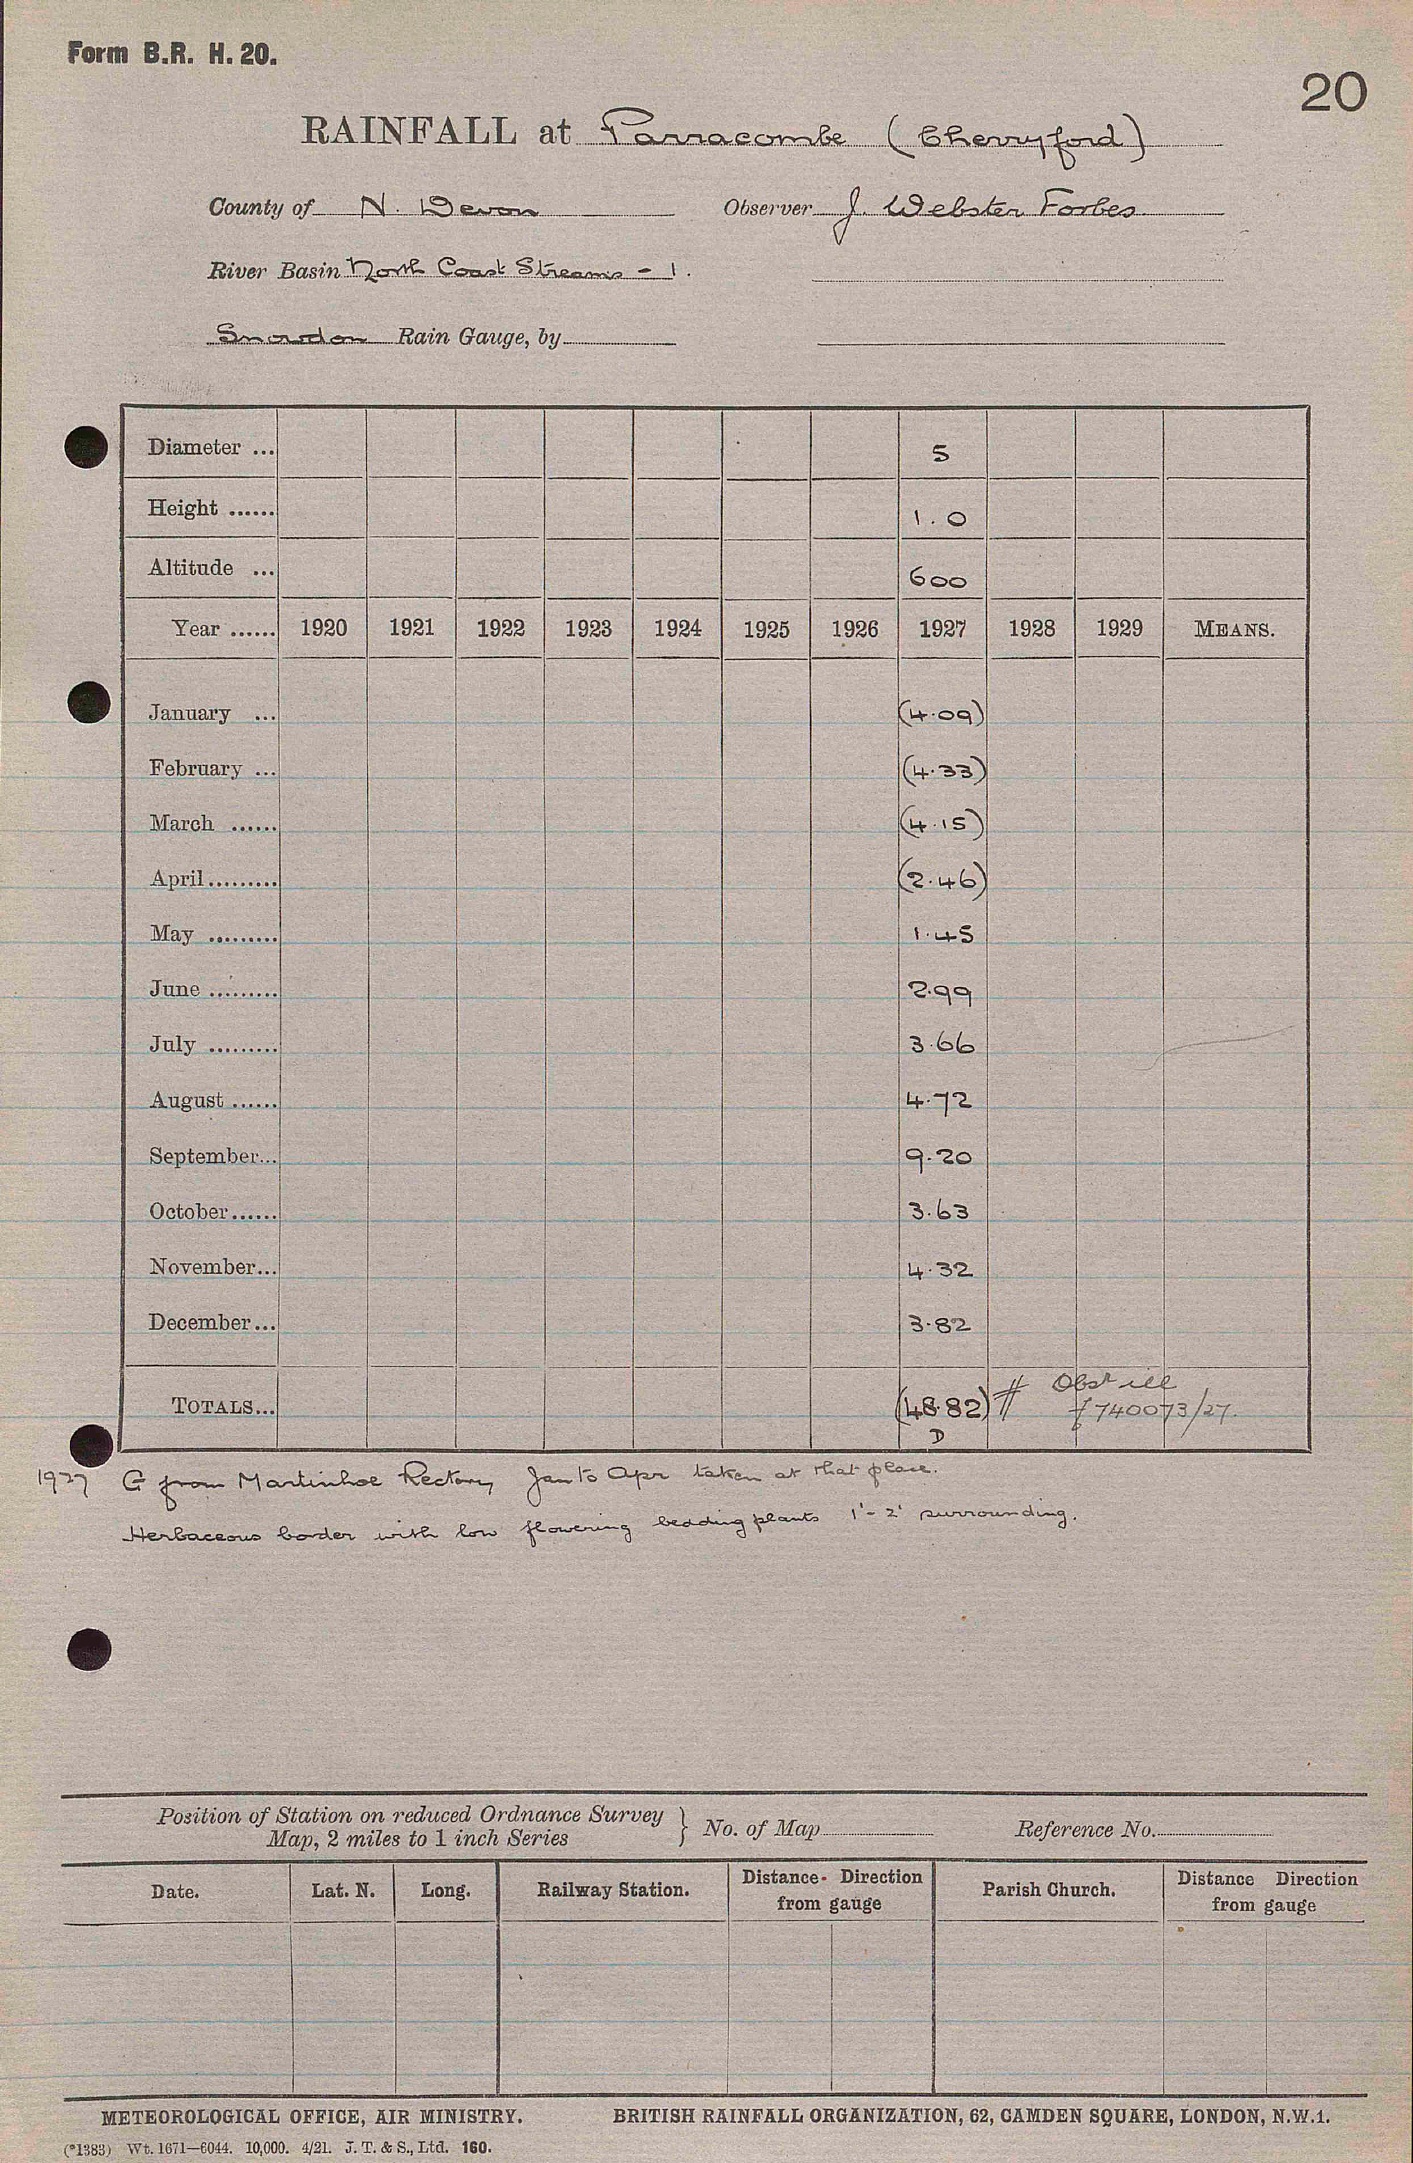 Form B.R. H. 20.
20
RAINFALL at Parracombe (Cherryford)
County of N. Devon Observer J. Webster Forbes
River Basin North Coast Streams - 1.
Snowdon Rain Gauge, by
Diameter ... 5
Height ...... 1.0
Altitude ... 600
Year ...... 1920 1921 1922 1923 1924 1925 1926 1927 1928 1929 MEANS.
January ... (4.09)
February ... (4.33)
March ...... (4.15)
April ......... (2.46)
May ......... 1.45
June ......... 2.99
July ......... 3.66
August ...... 4.72
September... 9.20
October...... 3.63
November... 4.32
December... 3.82
TOTALS... (48.82) # Obsr ill
D f 740073/27.
1927 G from Martinhoe Rectory Jan to Apr taken at that place.
Herbaceous border with low flowering bedding plants 1'-2' surrounding.
Position of Station on reduced Ordnance Survey
Map, 2 miles to 1 inch Series } No. of Map Reference No.
Date. Lat. N. Long. Railway Station. Distance Direction from gauge Parish Church. Distance Direction from gauge
METEOROLOGICAL OFFICE, AIR MINISTRY. BRITISH RAINFALL ORGANIZATION, 62, CAMDEN SQUARE, LONDON, N.W.1.
(*1383) Wt. 1671—6044. 10,000. 4/21. J. T. & S., Ltd. 160.